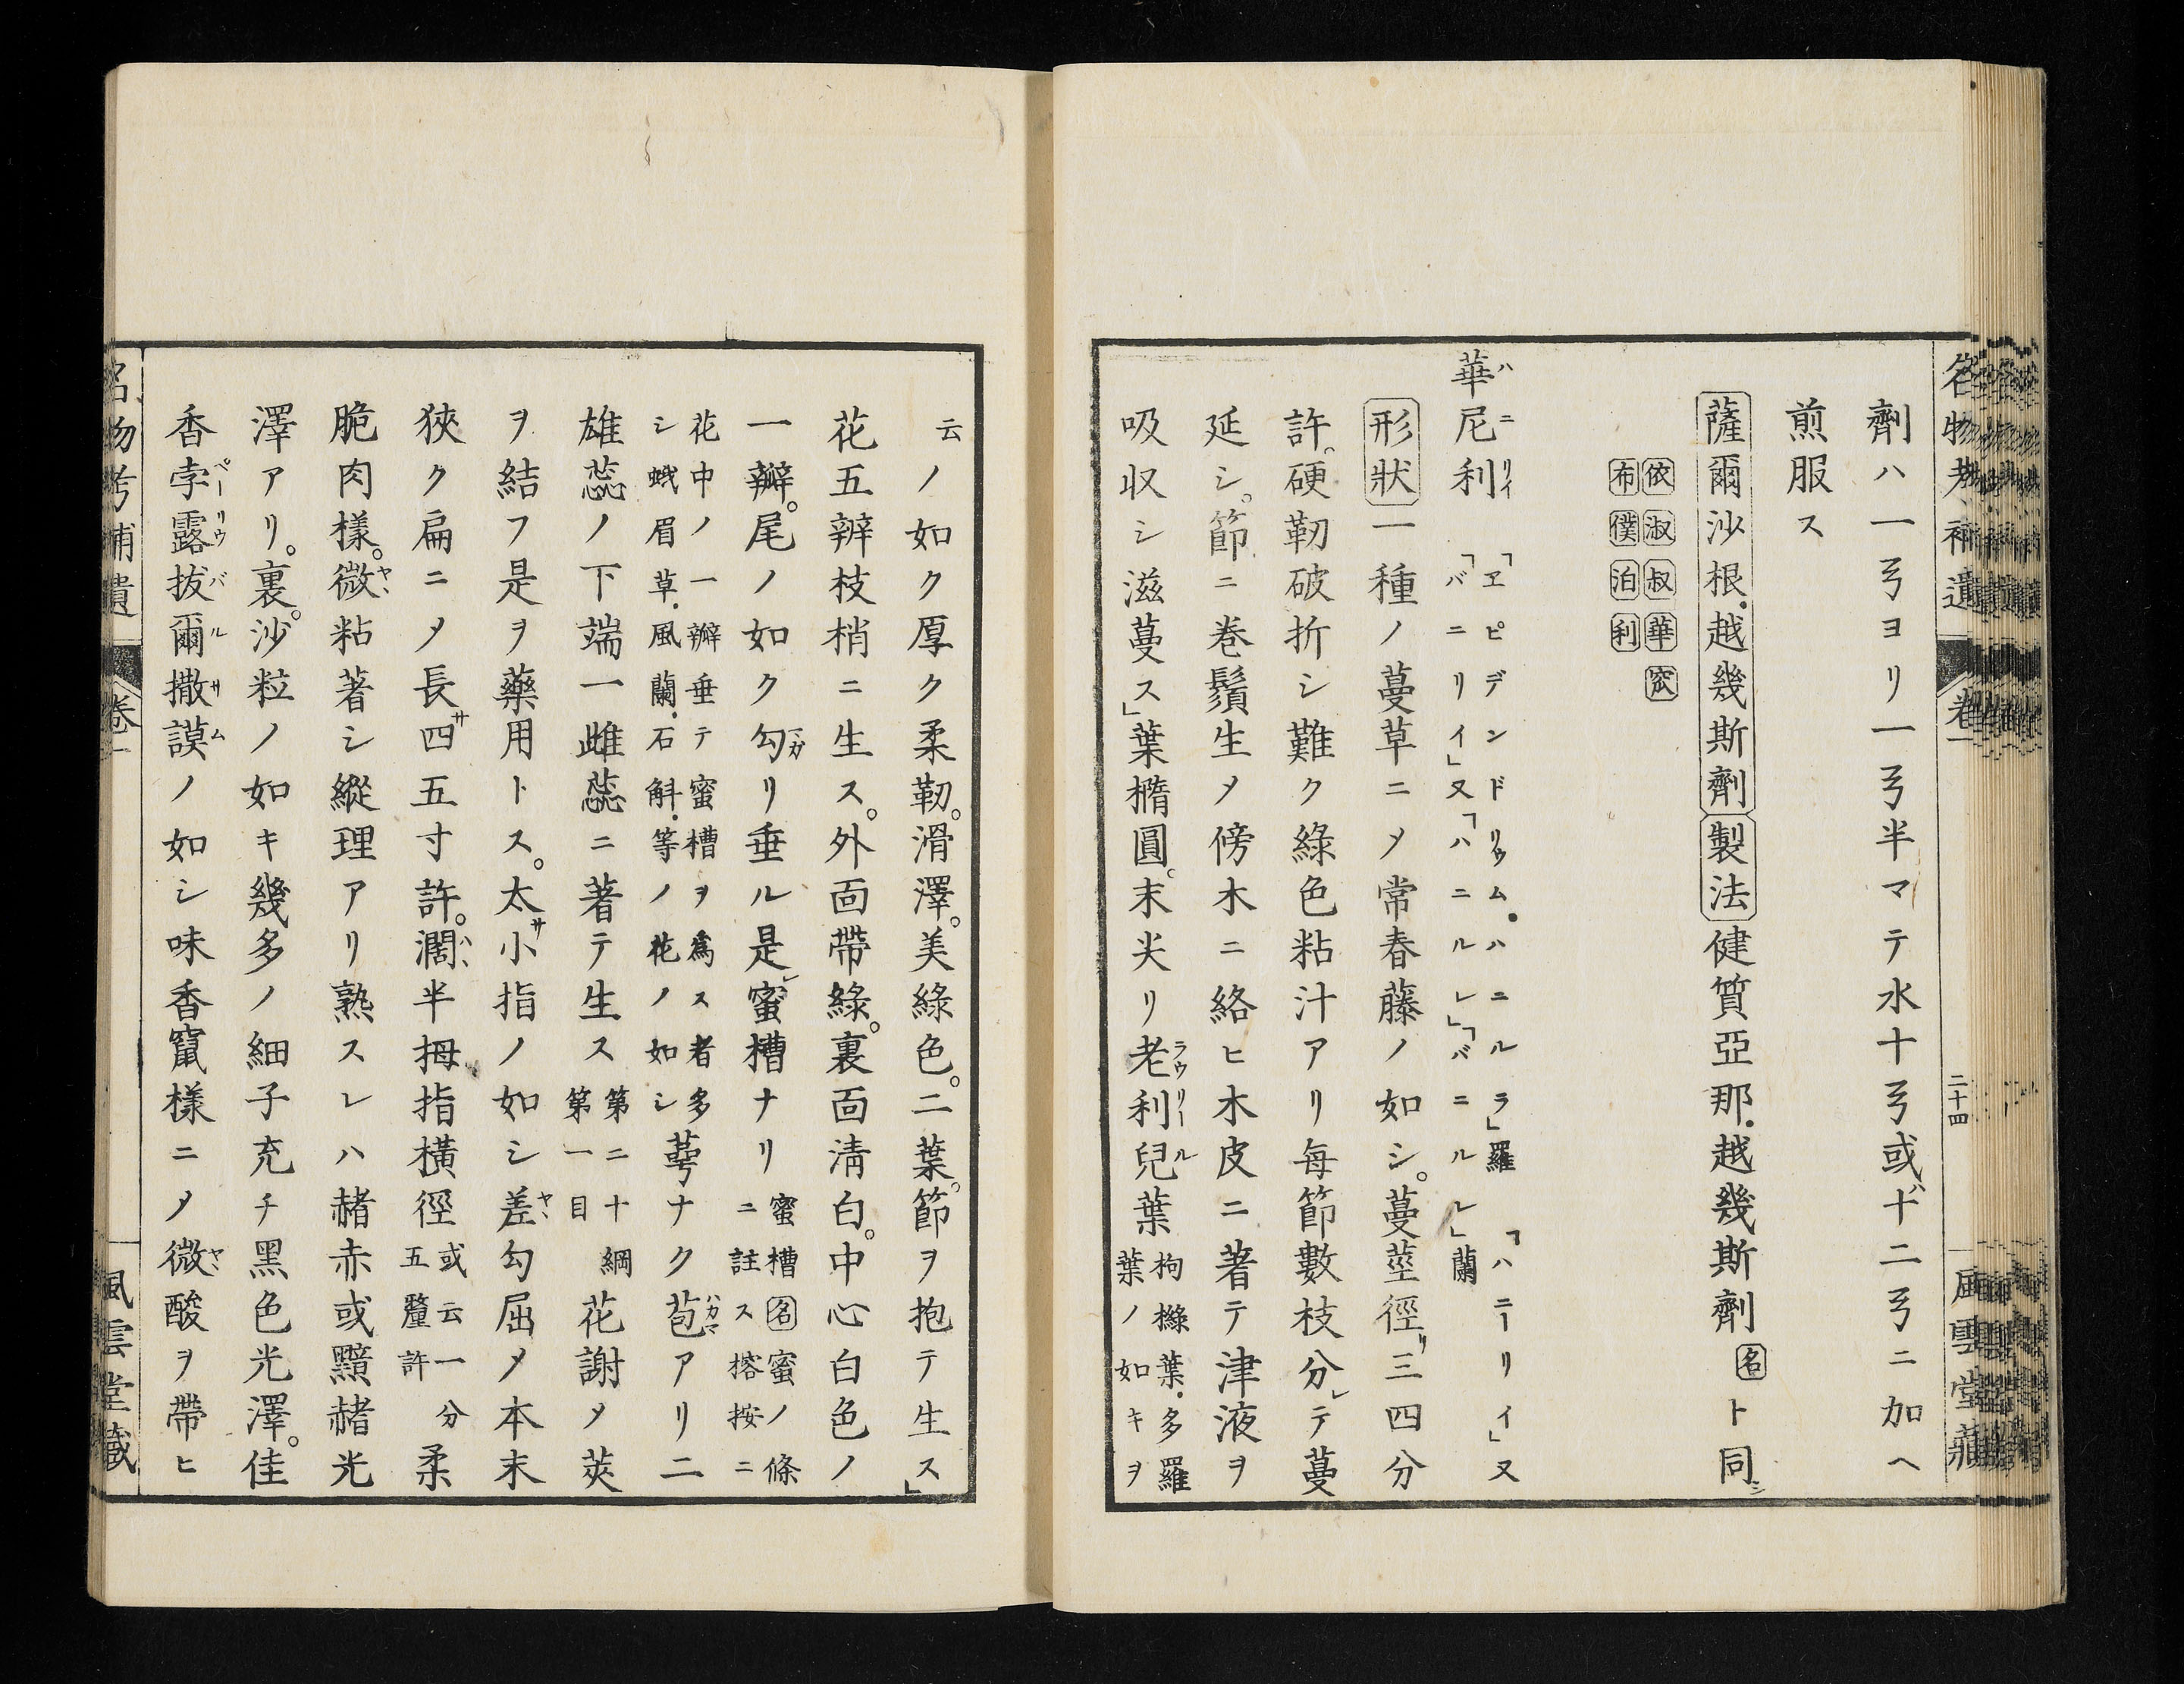 名物考補遺 卷一 二十四 風雲堂藏
劑ハ一弓ヨリ一弓半マテ水十弓或ハ二弓ニ加ヘ
煎服ス
薩爾沙根.越幾斯劑 製法 健質亞那.越幾斯劑 名 ト同シ
依 淑 叔 華
布 僕 泊 利
華尼利 「ヱピデンドリウム.ハニルラ」羅 「ハニーリイ」又
「バニリイ」又「ハニルレ」「バニルレ」蘭
形狀 一種ノ蔓草ニメ常春藤ノ如シ。蔓莖徑リ三四分
許。硬靭破折シ難ク綠色粘汁アリ每節數枝分レテ蔓
延シ。節ニ卷鬚生メ傍木ニ絡ヒ木皮ニ著テ津液ヲ
吸収シ滋蔓ス」葉橢圓。末尖リ老利兒葉 枸櫞葉.多羅
葉ノ如キヲ
云 ノ如ク厚ク柔靭。滑澤。美綠色。二葉。節ヲ抱テ生ス」
花五辨枝梢ニ生ス。外面帶綠。裏面淸白。中心白色ノ
一瓣。尾ノ如ク勾リ垂ル是レ蜜槽ナリ 蜜槽 名 蜜ノ條
ニ註ス榕按ニ
花中ノ一瓣垂テ蜜槽ヲ爲ス者多
シ蛾眉草.風蘭.石斛.等ノ花ノ如シ 萼ナク苞アリ二
雄蕊ノ下端一雌蕊ニ著テ生ス 第二十綱
第一目 花謝メ莢
ヲ結フ是ヲ藥用トス。太サ小指ノ如シ差勾屈メ本末
狹ク扁ニメ長サ四五寸許。濶ハヽ半拇指橫徑 或云一分
五釐許 柔
脆肉樣。微粘著シ縱理アリ熟スレハ赭赤或黯赭光
澤アリ。裏。沙粒ノ如キ幾多ノ細子充チ黑色光澤。佳
香孛露拔爾撒謨ノ如シ味香竄樣ニメ微酸ヲ帶ヒ
名物考補遺 卷一 風雲堂藏